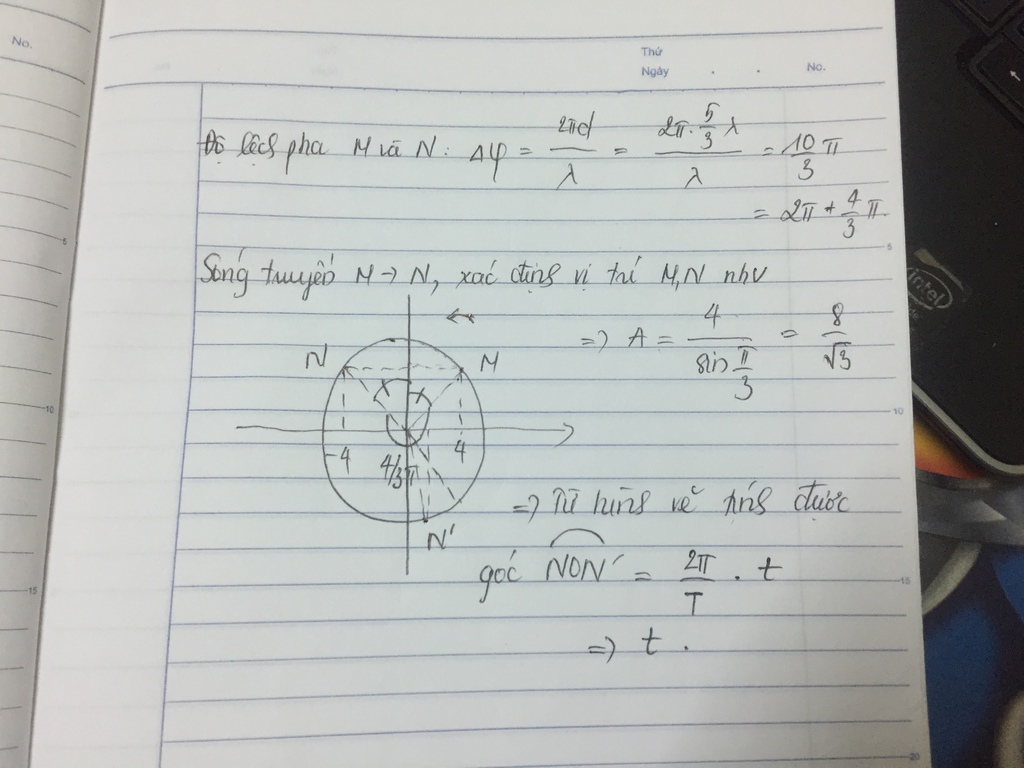 No.
Thứ
Ngày . . No.
Độ lệch pha M và N: Δφ = 2πd/λ = (2π·5/3 λ)/λ = 10/3 π
= 2π + 4/3 π
5
Sóng truyền M → N, xác định vị trí M, N như
=> A = 4/(sin π/3) = 8/√3
N M
10 10
-4 4/3 π 4
=> Từ hình vẽ tính được
N'
góc NON' = 2π/T . t
15 15
=> t .
20
5
intel